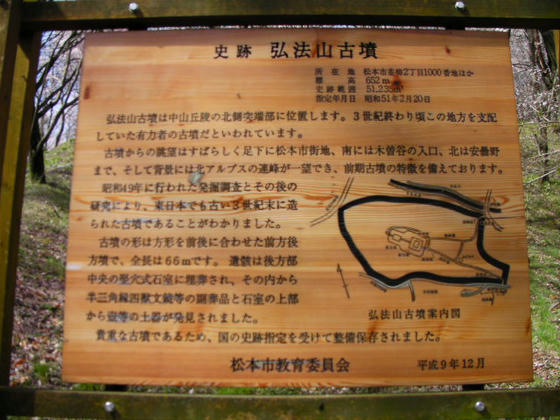 史跡 弘法山古墳
所在地 松本市並柳2丁目1000番地ほか
標高 652m
史跡範囲 51,235㎡
指定年月日 昭和51年2月20日
弘法山古墳は中山丘陵の北側突端部に位置します。3世紀終わり頃この地方を支配
していた有力者の古墳だといわれています。
古墳からの眺望はすばらしく足下に松本市街地、南には木曽谷の入口、北は安曇野
まで、そして背景には北アルプスの連峰が一望でき、前期古墳の特徴を備えております。
昭和49年に行われた発掘調査とその後の
研究により、東日本でも古い3世紀末に造
られた古墳であることがわかりました。
古墳の形は方形を前後に合わせた前方後
方墳で、全長は66mです。遺骸は後方部
中央の竪穴式石室に埋葬され、その内から
半三角縁四獣文鏡等の副葬品と石室の上部
から壺等の土器が発見されました。
貴重な古墳であるため、国の史跡指定を受けて整備保存されました。
弘法山古墳案内図
松本市教育委員会 平成9年12月